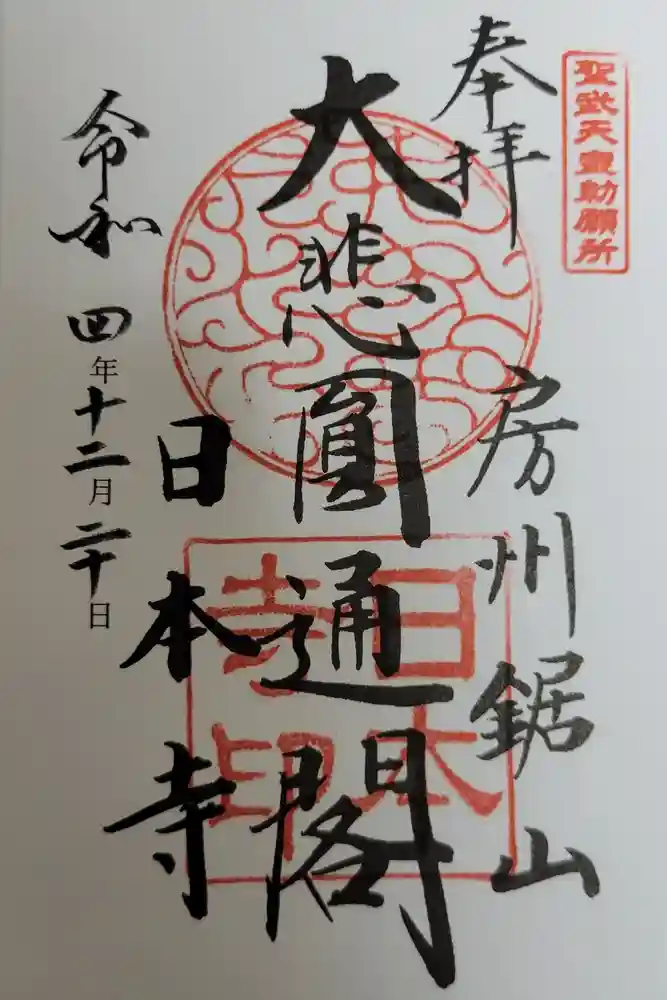 聖武天皇勅願所
奉拝
房州鋸山
大悲圓通閣
日本寺印
日本寺
令和四年十二月二十日